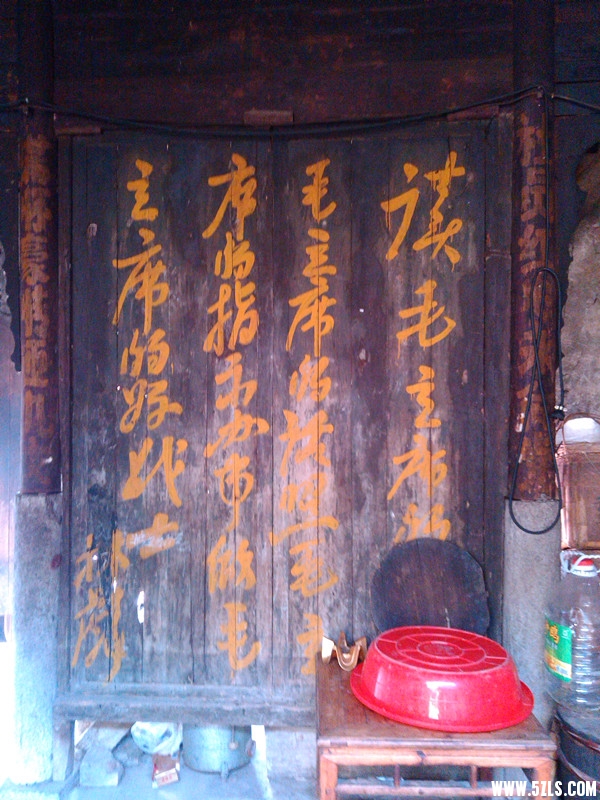 读毛主席的
毛主席的话照毛主
席的指示办事做毛
主席的好战士
林彪
WWW.5ZLS.COM